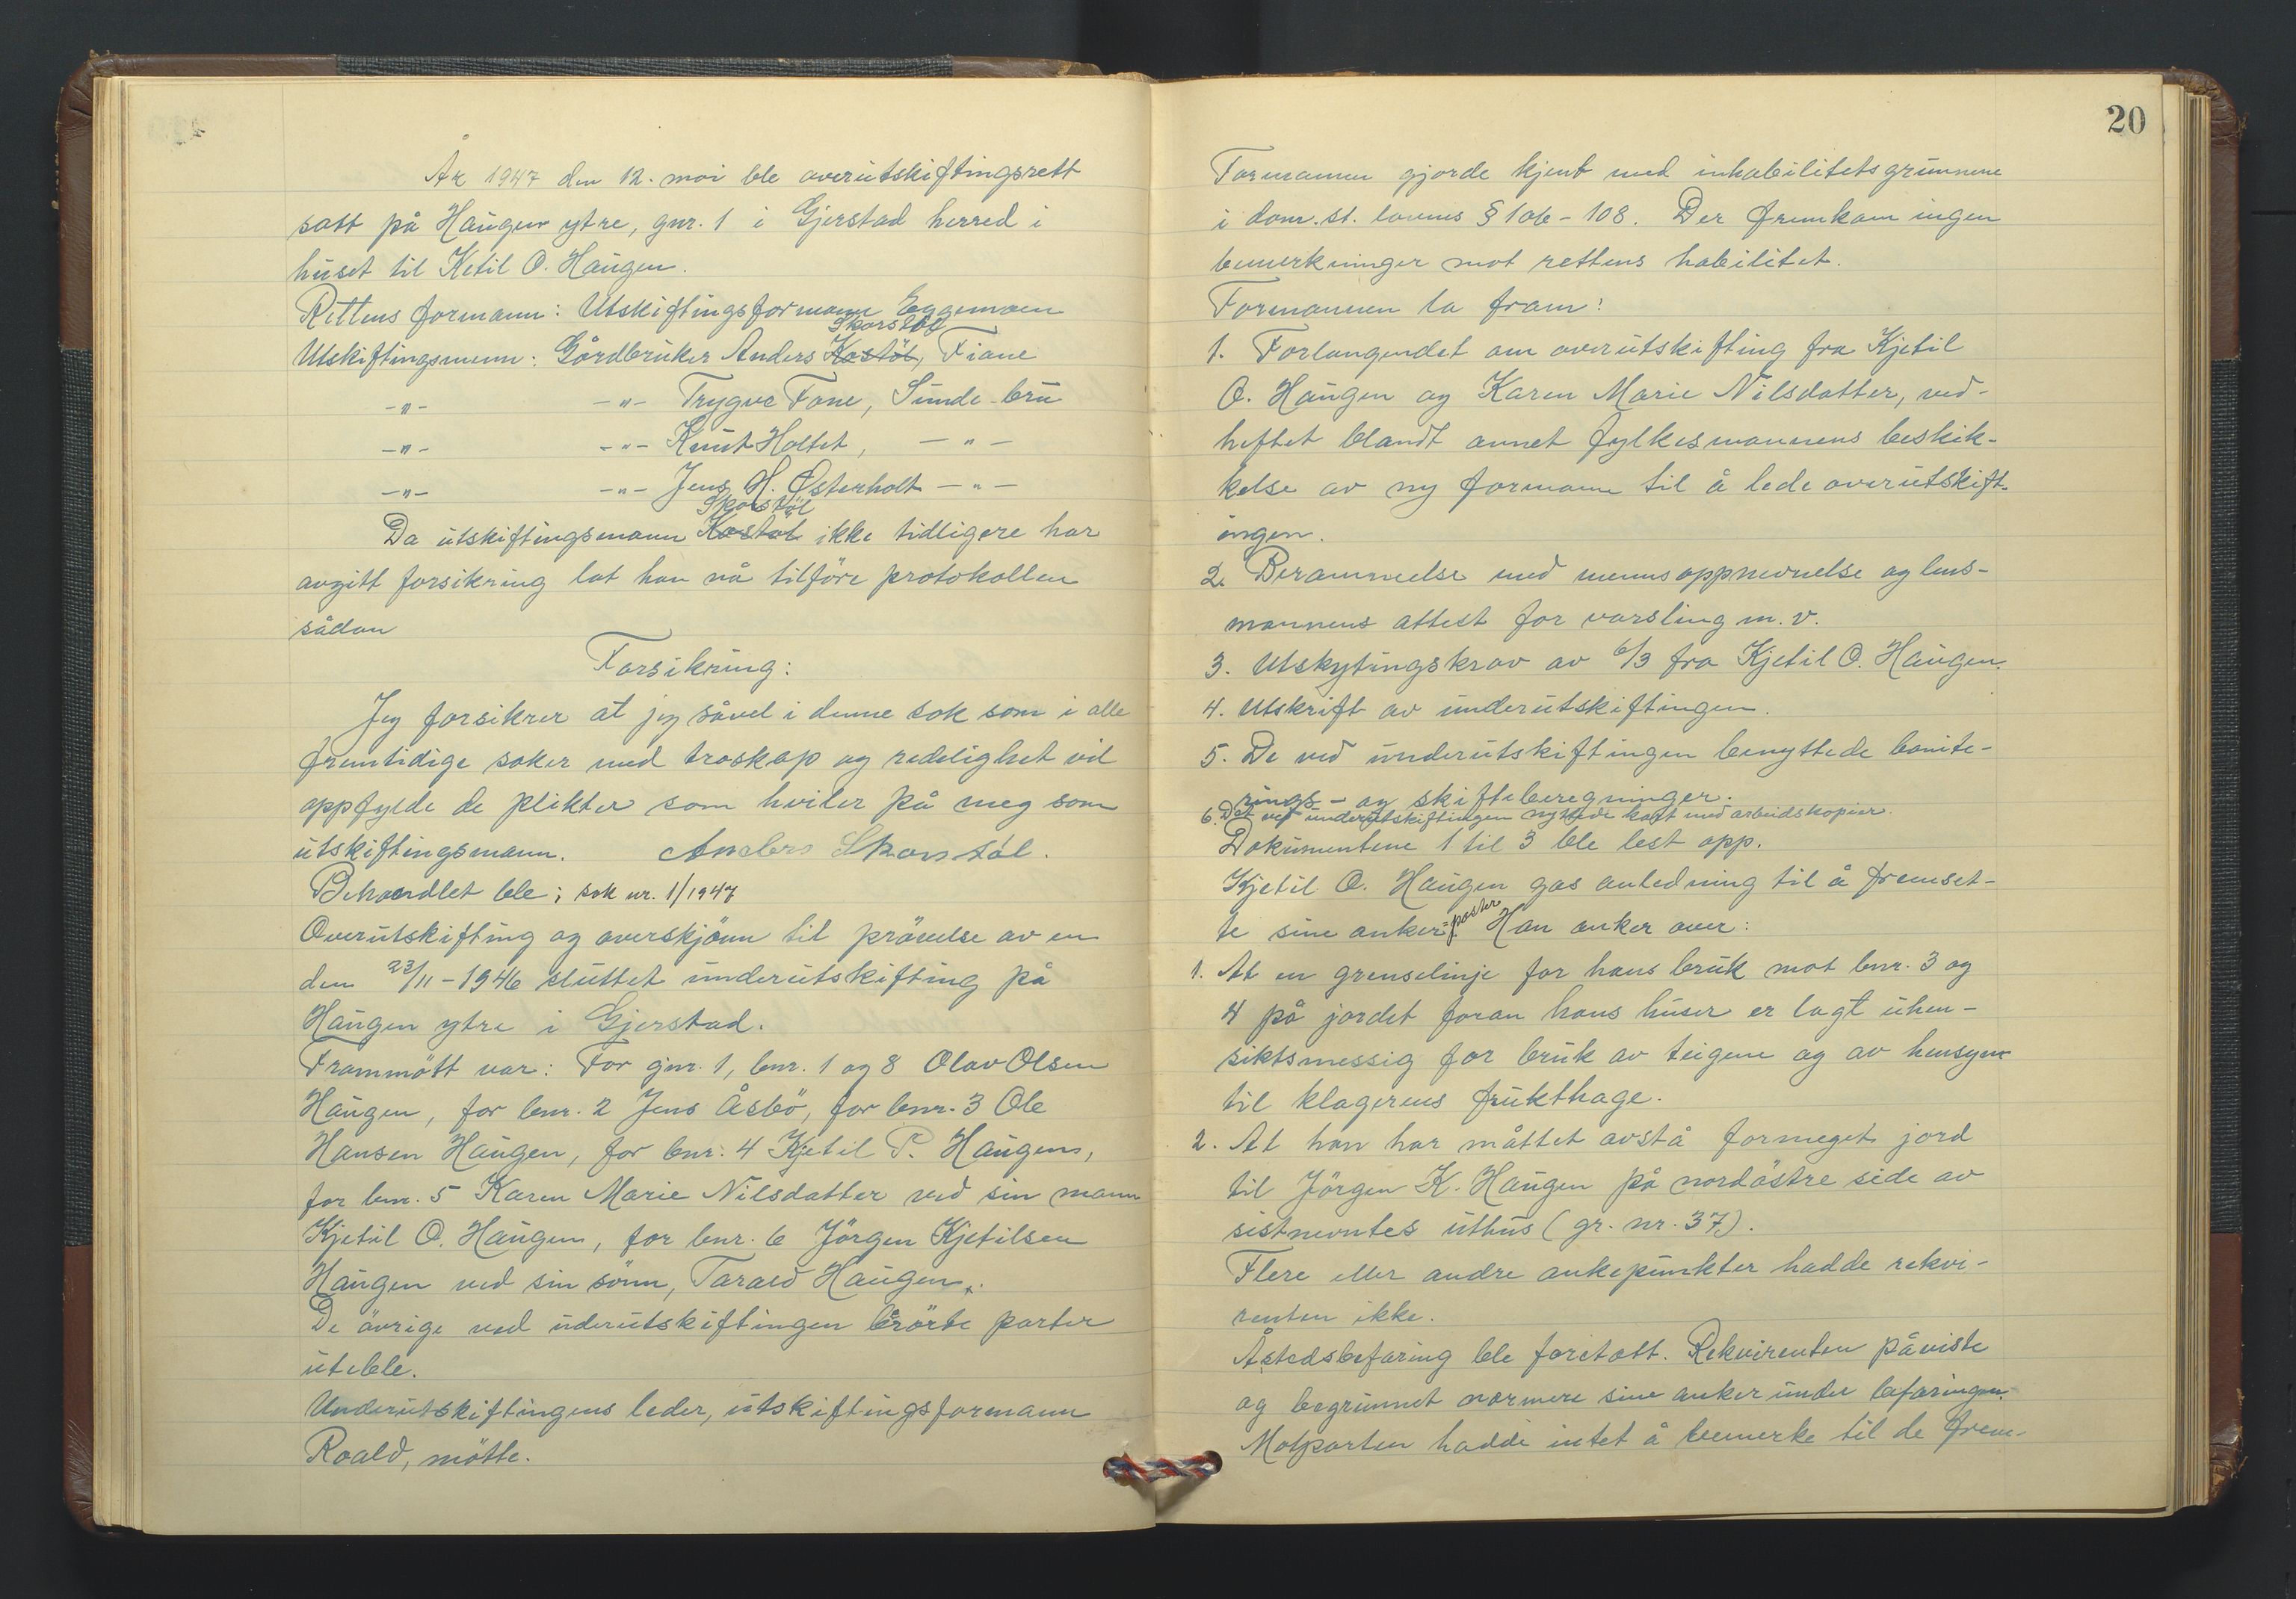 År 1947 den 12. mai ble overutskiftingsrett
satt på Haugen ytre, gnr. 1 i Gjerstad herred i
huset til Ketil O. Haugen.
Rettens formann: Utskiftingsformann Eggemoen
Skorstøl
Utskiftingsmenn: Gårdbruker Anders Kostöl, Fiane
-"- -"- Trygve Fone, Sunde-bru
-"- -"- Knut Holtet, -"-
-"- -"- Jens H. Østerholt -"-
Skorstöl
Da utskiftingsmann Kostøl ikke tidligere har
avgitt forsikring lot han nå tilföre protokollen
sådan
Forsikring:
Jeg forsikrer at jeg såvel i denne sak som i alle
fremtidige saker med troskap og redelighet vil
oppfylde de plikter som hviler på meg som
utskiftingsmann. Anders Skorstøl.
Behandlet ble: sak nr. 1/1947
Overutskifting og overskjönn til prövelse av en
den 23/11-1946 sluttet underutskifting på
Haugen ytre i Gjerstad.
Frammött var: For gnr. 1, bnr. 1 og 8 Olav Olsen
Haugen, for bnr. 2 Jens Åsbö, for bnr. 3 Ole
Hansen Haugen, for bnr. 4 Kjetil P. Haugen,
for bnr. 5 Karen Marie Nilsdatter ved sin mann
Kjetil O. Haugen, for bnr. 6 Jörgen Kjetilsen
Haugen ved sin sönn, Tarald Haugen.
De övrige ved uderutskiftingen berörte parter
uteble.
Underutskiftingens leder, utskiftingsformann
Roald, mötte.
20
Formannen gjorde kjent med inhabilitetsgrunnene
i dom.st. lovens § 106-108. Der fremkom ingen
bemerkninger mot rettens habilitet.
Formannen la fram:
1. Forlangendet om overutskifting fra Kjetil
O. Haugen og Karen Marie Nilsdatter, ved-
heftet blandt annet fylkesmannens beskik-
kelse av ny formann til å lede overutskift-
ingen.
2. Berammelse med mennsoppnevnelse og lens-
mannens attest for varsling m.v.
3. Utskytingskrav av 6/3 fra Kjetil O. Haugen.
4. Utskrift av underutskiftingen.
5. De ved underutskiftingen benyttede bonite-
rings- og skifteberegninger.
6. Det ved underutskiftingen nyttede kart med arbeidskopier.
Dokumentene 1 til 3 ble lest opp.
Kjetil O. Haugen gas anledning til å fremset-
te sine anker=poster. Han anker over:
1. At en grenselinje for hans bruk mot bnr. 3 og
4 på jordet foran hans huser er lagt uhen-
siktsmessig for bruk av teigene og av hensyn
til klagerens frukthage.
2. At han har måttet avstå formeget jord
til Jörgen K. Haugen på nordöstre side av
sistnevntes uthus (gr. nr. 37).
Flere eller andre ankepunkter hadde rekvi-
renten ikke.
Åstedsbefaring ble foretatt. Rekvirenten påviste
og begrunnet nærmere sine anker under befaringen.
Motparten hadde intet å bemerke til de frem-